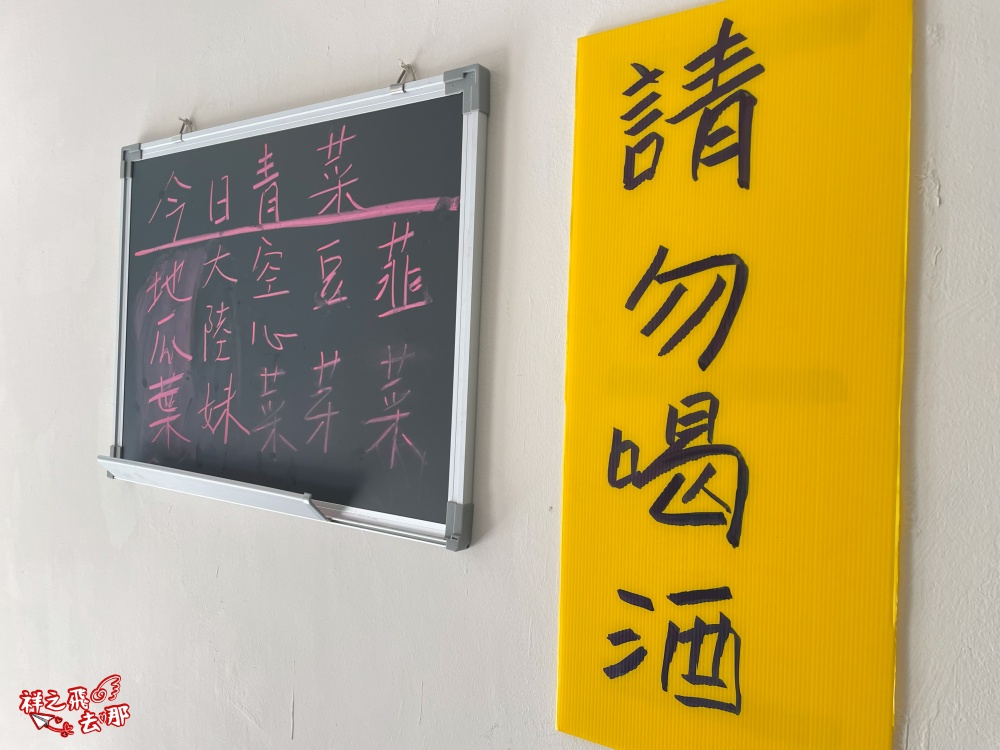 今日青菜
地瓜葉
大陸妹
空心菜
豆芽
韮菜
請勿喝酒
祥之飛
去那